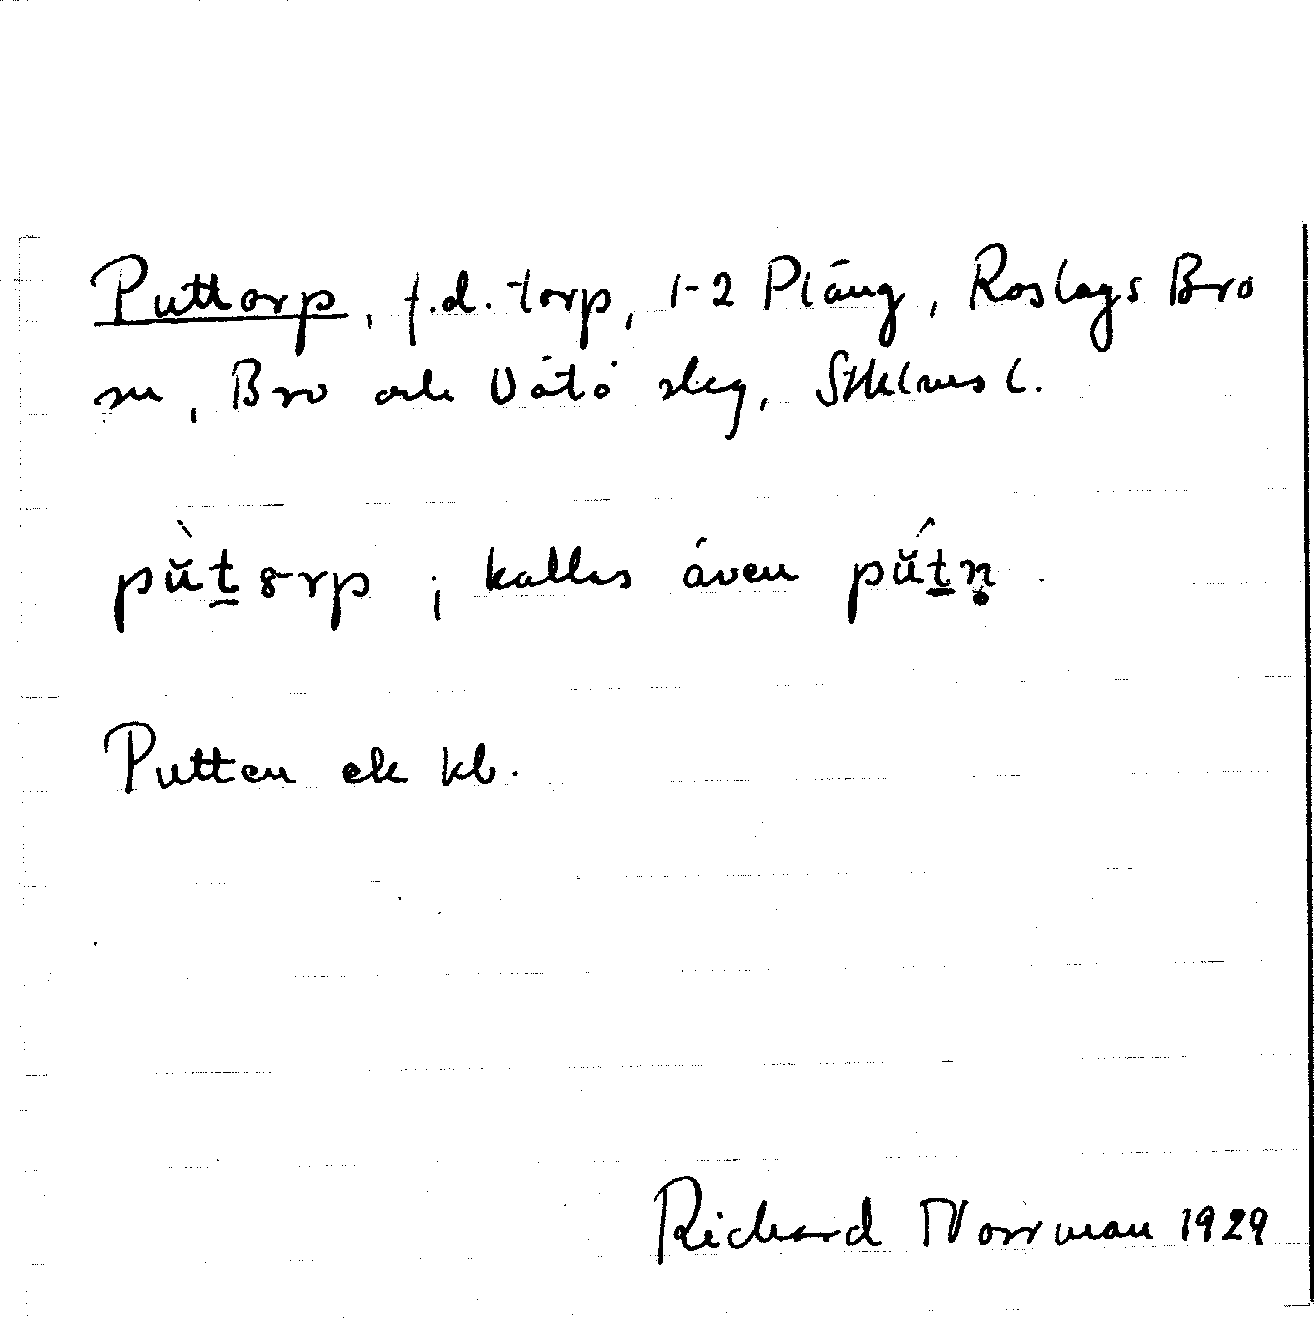 Puttorp, f.d. torp, 1-2 Pläng, Roslags Bro
sn, Bro och Vätö skg, Sthlms l.
pŭ̀t̠orp ; kallas även pŭ́t̠n̥
Putten ek kb.
Richard Norrman 1929